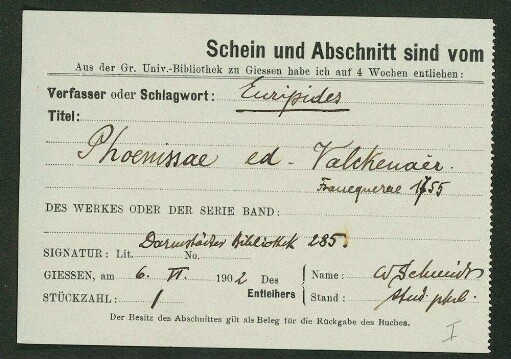 Schein und Abschnitt sind vom
Aus der Gr. Univ.-Bibliothek zu Giessen habe ich auf 4 Wochen entliehen:
Verfasser oder Schlagwort: Euripides
Titel:
Phoenissae ed. Valckenaer.
Franequerae 1755
DES WERKES ODER DER SERIE BAND:
Darmstädter Bibliothek 285.
SIGNATUR: Lit. No.
GIESSEN, am 6. VI. 1902 Des Entleihers Name: W Schmidt
STÜCKZAHL: 1 Stand: stud. phil.
Der Besitz des Abschnittes gilt als Beleg für die Rückgabe des Buches.
I